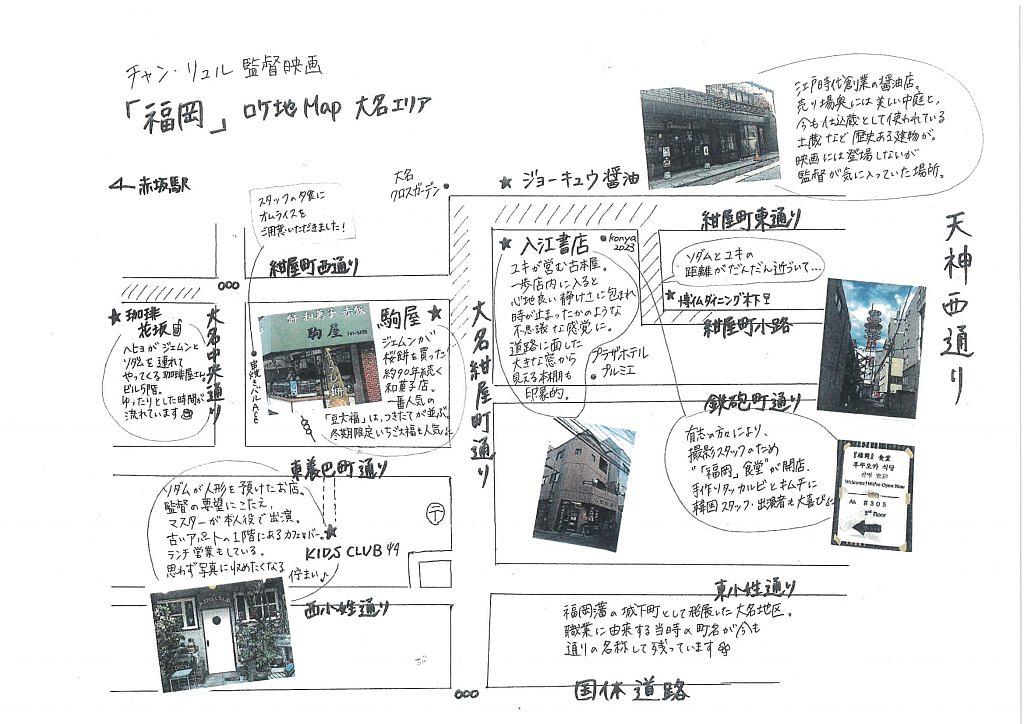 チャン・リュル監督映画
「福岡」ロケ地Map 大名エリア
江戸時代創業の醤油店。
売り場奥には美しい中庭と、
今も仕込蔵として使われている
土蔵など歴史ある建物が。
映画には登場しないが
監督が気に入っていた場所。
赤坂駅
大名
クロスガーデン
★ ジョーキュウ醤油
スタッフの夕食に
オムライスを
ご用意いただきました!
紺屋町西通り
紺屋町東通り
天神西通り
★ 入江書店
konya
2023
ユキが営む古本屋。
一歩店内に入ると
心地良い静けさに包まれ
時が止まったかのような
不思議な感覚に。
道路に面した
大きな窓から
見える本棚も
印象的。
ソダムとユキの
距離がだんだん近づいて…
★博多ダイニング木下
紺屋町小路
プラザホテル
プルミエ
★珈琲
花坂
ヘヒョがジェムンと
ソダムを連れて
やってくる珈琲屋さん。
ビル5階。
ゆったりとした時間が
流れています
大名中央通り
串焼きバルACE
餅 和菓子 赤飯
駒屋
駒屋★
ジェムンが
桜餅を買った!
約90年続く
和菓子店。
一番人気の
「豆大福」は、つきたてが並ぶ。
冬期限定いちご大福も人気♪
大名紺屋町通り
鉄砲町通り
有志の方により、
撮影スタッフのため
"「福岡」食堂"が開店。
手作りタッカルビとキムチに
韓国スタッフ・出演者も大喜び♪
『福岡』食堂
후쿠오카 식당
Welcome! We're Open Now
#305
3rd Floor
東養巴町通り
ソダムが人形を預けたお店。
監督の要望にこたえ、
マスターが本人役で出演。
古いアパートの1階にあるカフェ&バー。
ランチ営業もしている。
思わず写真に収めたくなる
佇まい♪
★
KIDS CLUB
〒
西小姓通り
東小姓通り
福岡藩の城下町として発展した大名地区。
職業に由来する当時の町名が今も
通りの名称して残っています
国体道路